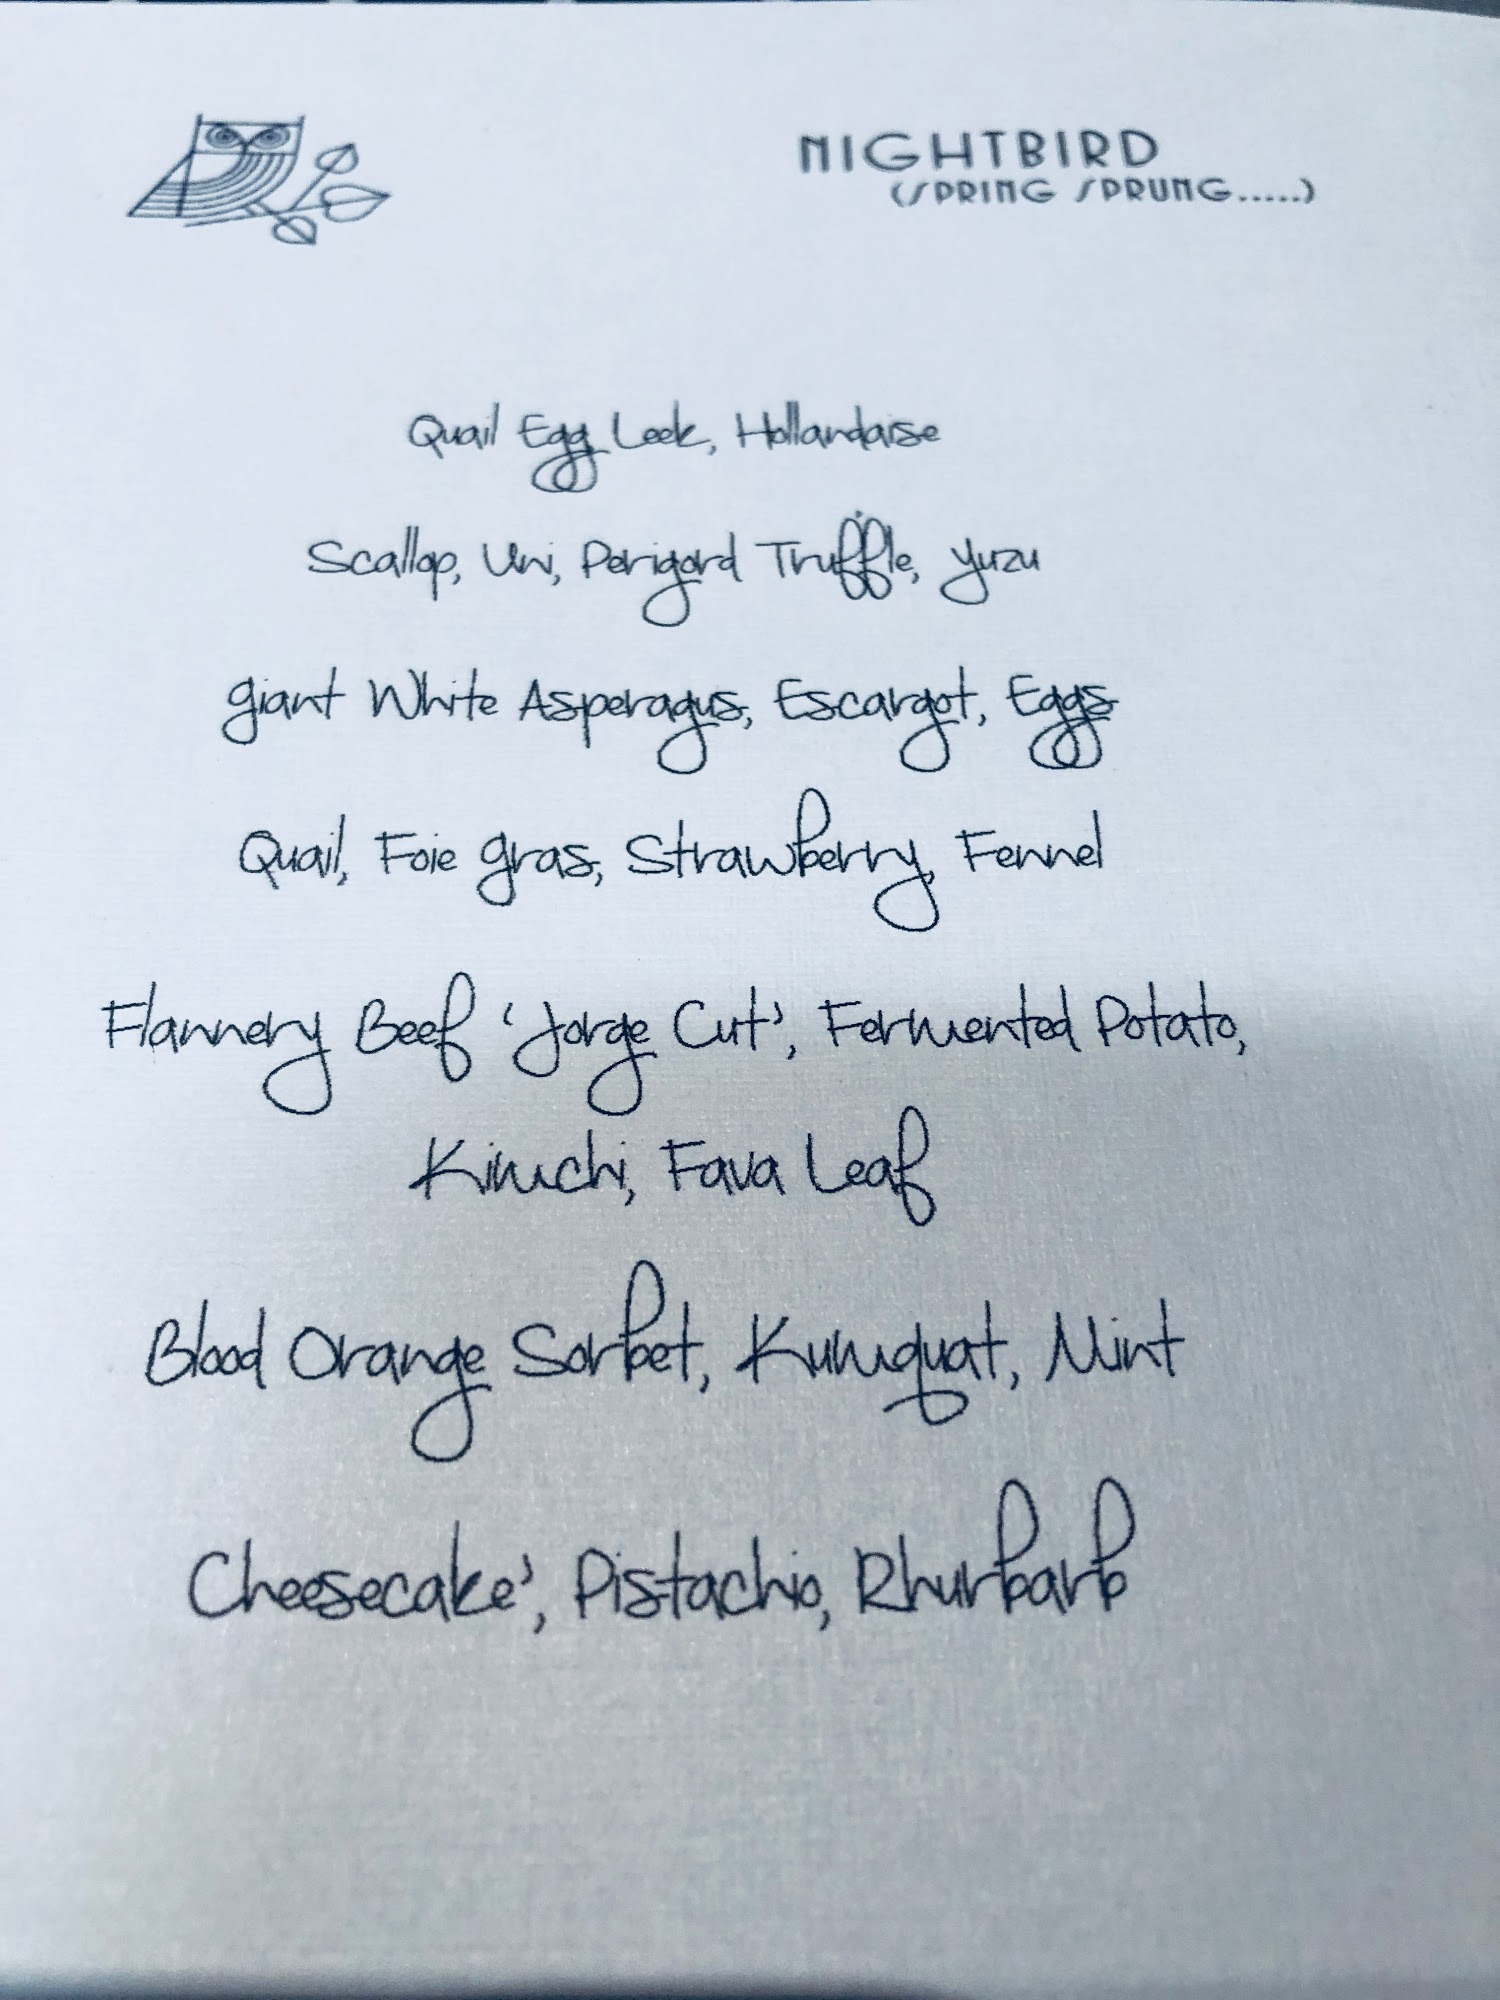 NIGHTBIRD
(SPRING SPRUNG.....)
Quail Egg Leek, Hollandaise
Scallop, Uni, Perigord Truffle, Yuzu
Giant White Asperagus, Escargot, Eggs
Quail, Foie Gras, Strawberry, Fennel
Flannery Beef 'Jorge Cut', Fermented Potato,
Kimchi, Fava Leaf
Blood Orange Sorbet, Kumquat, Mint
Cheesecake', Pistachio, Rhurbarb